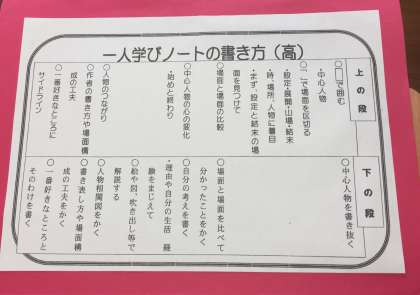 一人学びノートの書き方（高）
上の段
○□で囲む
・中心人物
○「 」で場面を区切る
・設定・展開・山場・結末
・時、場所、人物に着目
・まず、設定と結末の場
面を見つけて
○場面と場面の比較
○中心人物の心の変化
・始めと終わり
○人物のつながり
○作者の書き方や場面構
成の工夫
○一番好きなところに
サイドライン
下の段
○中心人物を書き抜く
○場面と場面を比べて
分かったことをかく
○自分の考えを書く
・理由や自分の生活 経
験をまじえて
○絵や図、吹き出し等で
解説する
○人物相関図をかく
○書き表し方や場面構
成の工夫をかく
○一番好きなところと
そのわけを書く